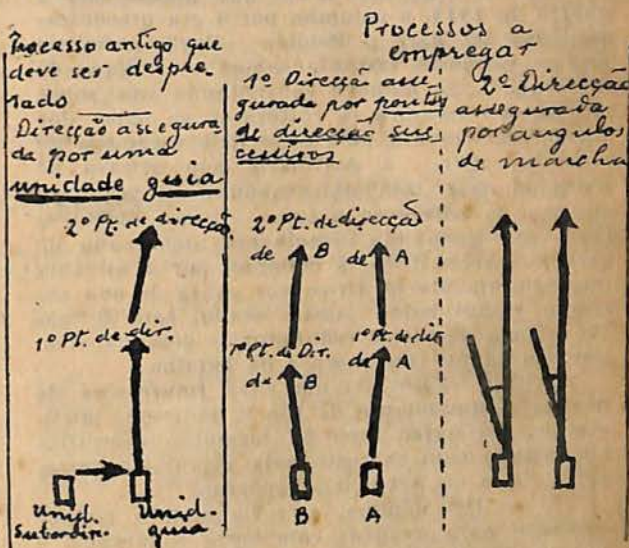 Processo antigo que
deve ser despre-
sado
Direcção assegura
da por uma
unidade guia
2º Pt. de direcção
1º Pt. de dir.
Unid.
subordin.
Unid-
guia
Processos a
empregar
1º Direcção asse-
gurada por pontos
de direcção suc
cessivos
2º Pt. de direcção
de B de A
1º Pt. de Dir. 1º Pt. de dir
de B de A
B A
2º Direcção
assegurada
por angulos
de marcha